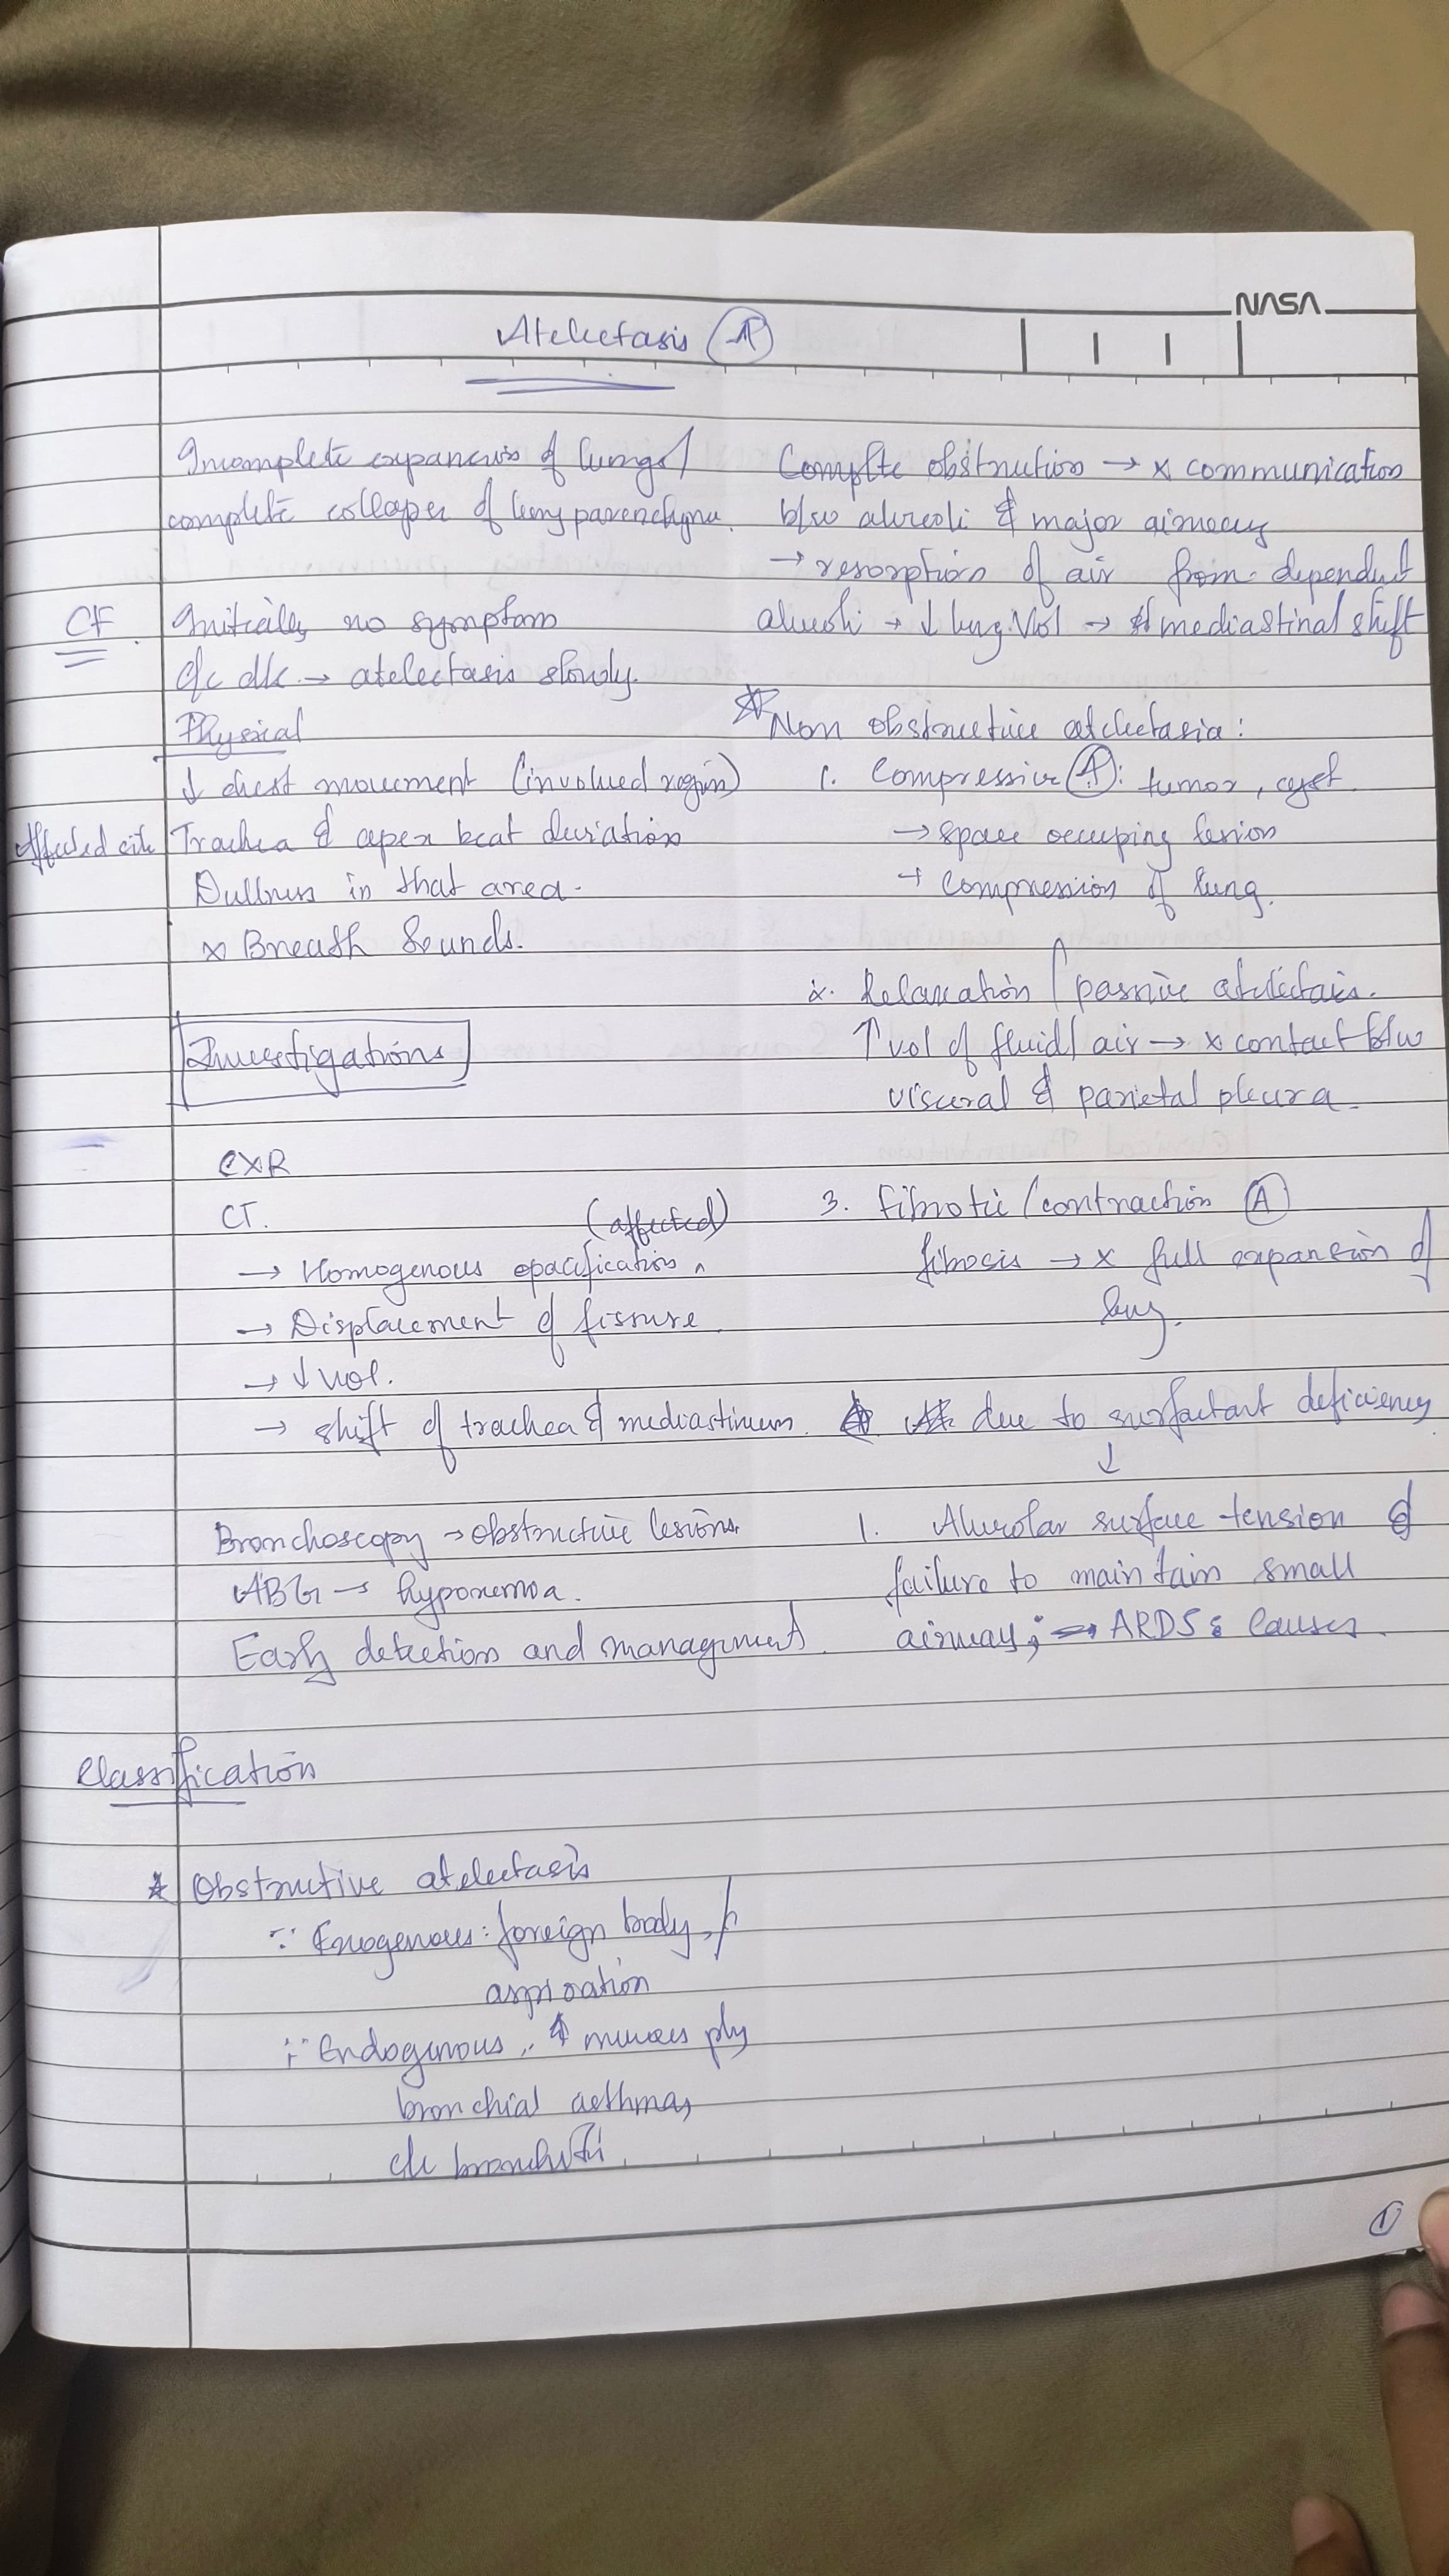 NASA
Atelectasis (A)
Incomplete expansion of lungs/
complete collapse of lung parenchyma.
CF Initially no symptom
c/c d/c → atelectasis slowly.
Physical
↓ chest movement (involved region)
Affected site Trachea & apex beat deviation
Dullness in that area.
x Breath Sounds.
Investigations
CXR
CT.
(affected)
→ Homogenous opacification ^
→ Displacement of fissure
→ ↓ vol.
→ shift of trachea & mediastinum.
Bronchoscopy → obstructive lesions.
ABG → hypoxemia.
Early detection and management.
Classification
* Obstructive atelectasis
∵ Exogenous: foreign body,
aspiration
∵ Endogenous, mucus plug
bronchial asthma,
c/c bronchiti
Complte obstruction → x communication
b/w alveoli & major airway
→ resorption of air from dependent
alveoli → ↓ lung vol → mediastinal shift
* Non obstructive atelectasis:
1. Compressive (A): tumor, cyst
→ space occuping lesion
→ compression of lung.
2. Relaxation / passive atelectasis.
↑ vol of fluid/air → x contact b/w
visceral & parietal pleura.
3. Fibrotic/contraction (A)
fibrosis → x full expansion of
lung.
due to surfactant deficiency
↓
1. Alveolar surface tension &
failure to maintain small
airway; → ARDS: causes.
1